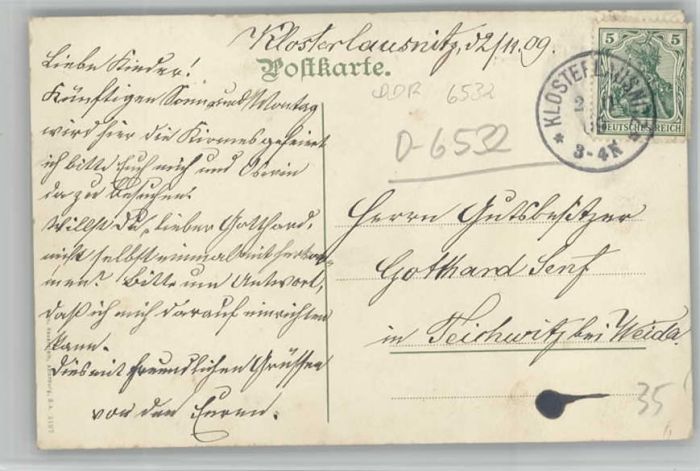 Klosterlausnitz, d 2/11. 09.
Postkarte.
5 5
DEUTSCHES REICH
KLOSTERLAUSNITZ
2 11
09
3-4N
DDR 6532
D-6532
Liebe Kinder!
Künftigen Sonn- und Montag
wird hier die Kirmes gefeiert
ich bitte Euch mich und
dazu besuchen!
Willst du, lieber Gotthard,
nicht selbst einmal mit herkom-
men? Bitte um Antwort,
daß ich mich darauf einrichten
kann.
Dies mit freundlichen Grüssen
von den Euren.
Herrn Gutsbesitzer
Gotthard Senf
in Teichwitz bei Weida.
35